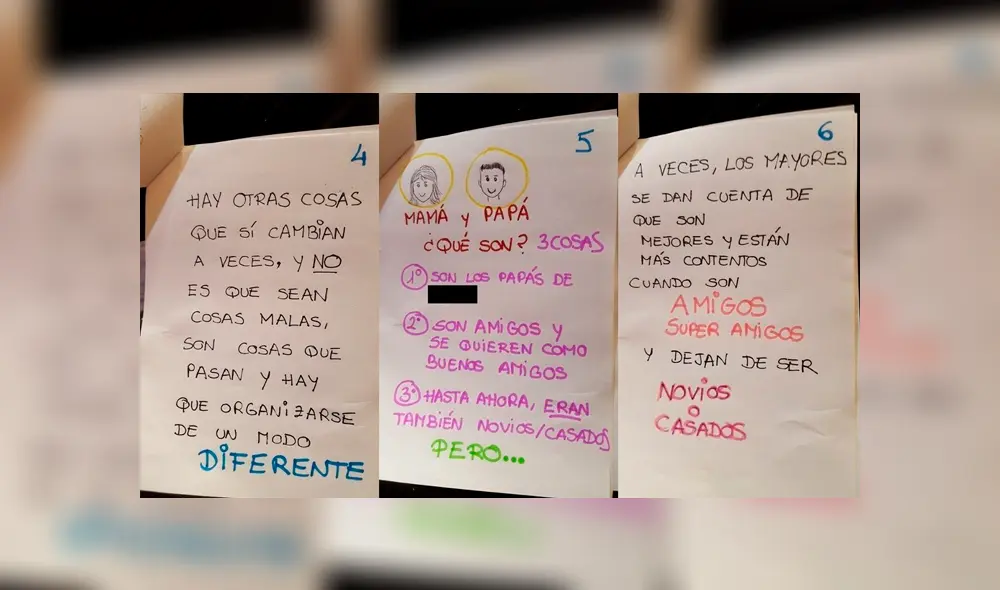 4
HAY OTRAS COSAS
QUE SÍ CAMBIAN
A VECES, Y NO
ES QUE SEAN
COSAS MALAS,
SON COSAS QUE
PASAN Y HAY
QUE ORGANIZARSE
DE UN MODO
DIFERENTE
5
MAMÁ y PAPÁ
¿QUÉ SON? 3 COSAS
1º SON LOS PAPÁS DE
2º SON AMIGOS Y
SE QUIEREN COMO
BUENOS AMIGOS
3º HASTA AHORA, ERAN
TAMBIÉN NOVIOS/CASADOS
PERO...
6
A VECES, LOS MAYORES
SE DAN CUENTA DE
QUE SON
MEJORES Y ESTÁN
MÁS CONTENTOS
CUANDO SON
AMIGOS
SUPER AMIGOS
Y DEJAN DE SER
NOVIOS
O
CASADOS